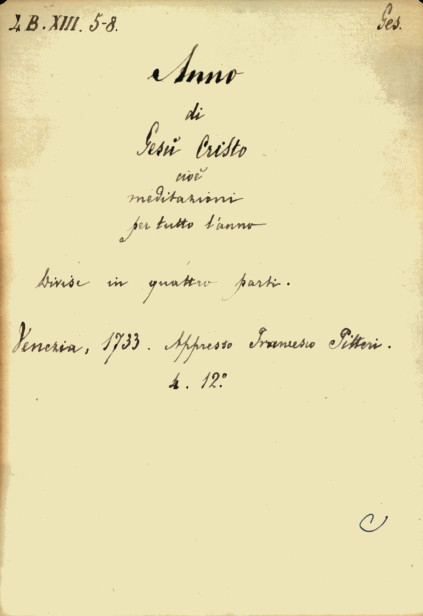 4 B. XIII. 5-8. Ges.
Anno
di
Gesù Cristo
cioè
meditazioni
per tutto l'anno
Divise in quattro parti.
Venezia, 1733. Appresso Francesco Pitteri.
4. 12°